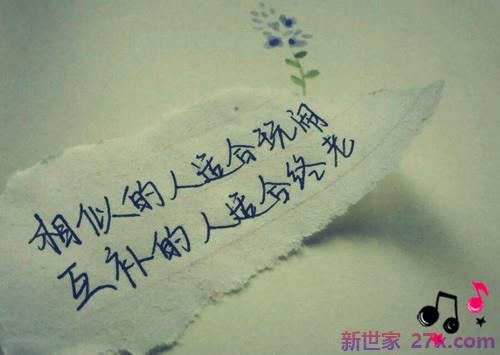 相似的人适合玩闹
互补的人适合终老
新世家 27x.com